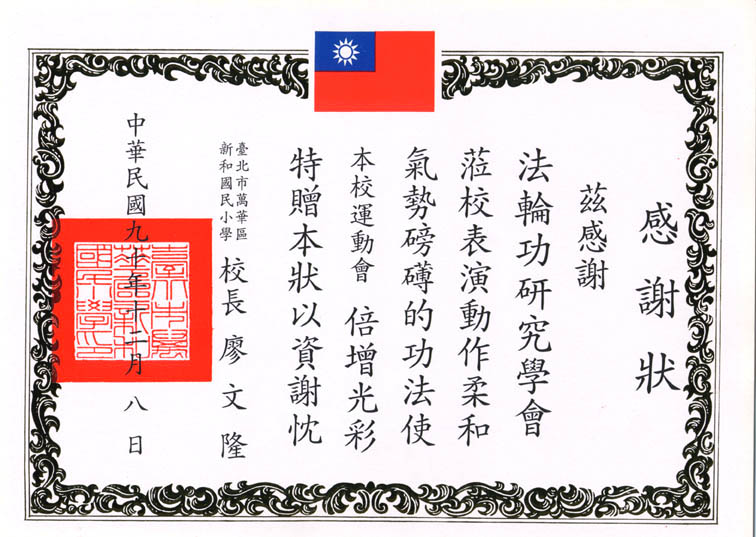 感謝狀
茲感謝
法輪功研究學會
蒞校表演動作柔和
氣勢磅礡的功法使
本校運動會 倍增光彩
特贈本狀以資謝忱
臺北市萬華區
新和國民小學
校長 廖文隆
中華民國九十年十二月八日
臺北市萬
華區新和
國民小學印